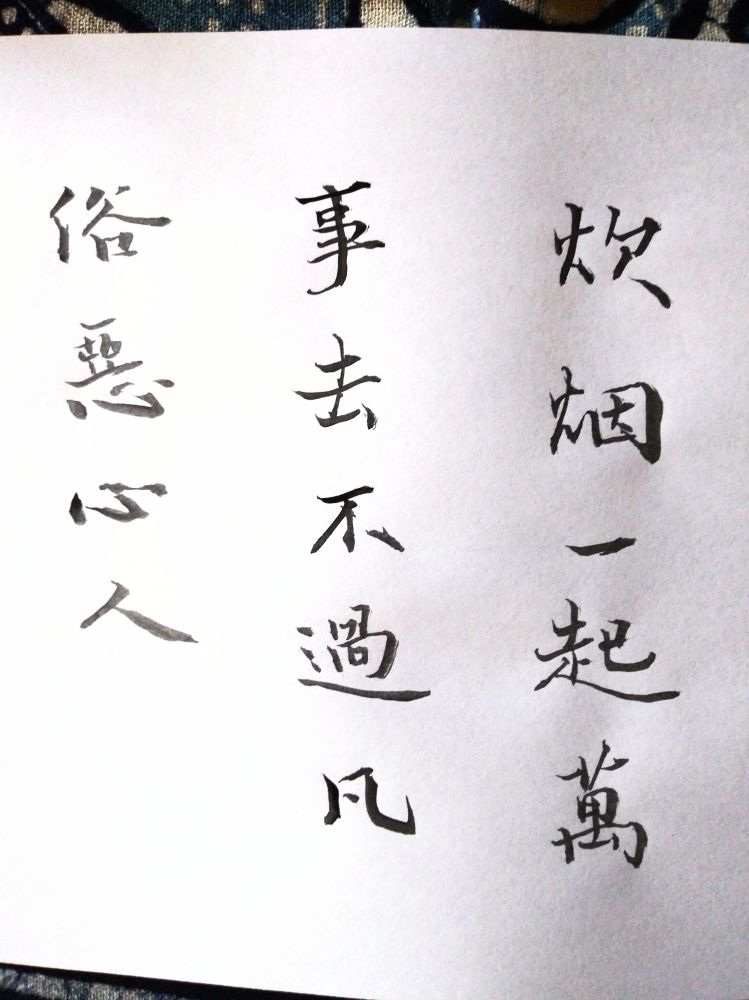 炊烟一起萬
事去不過凡
俗惡心人